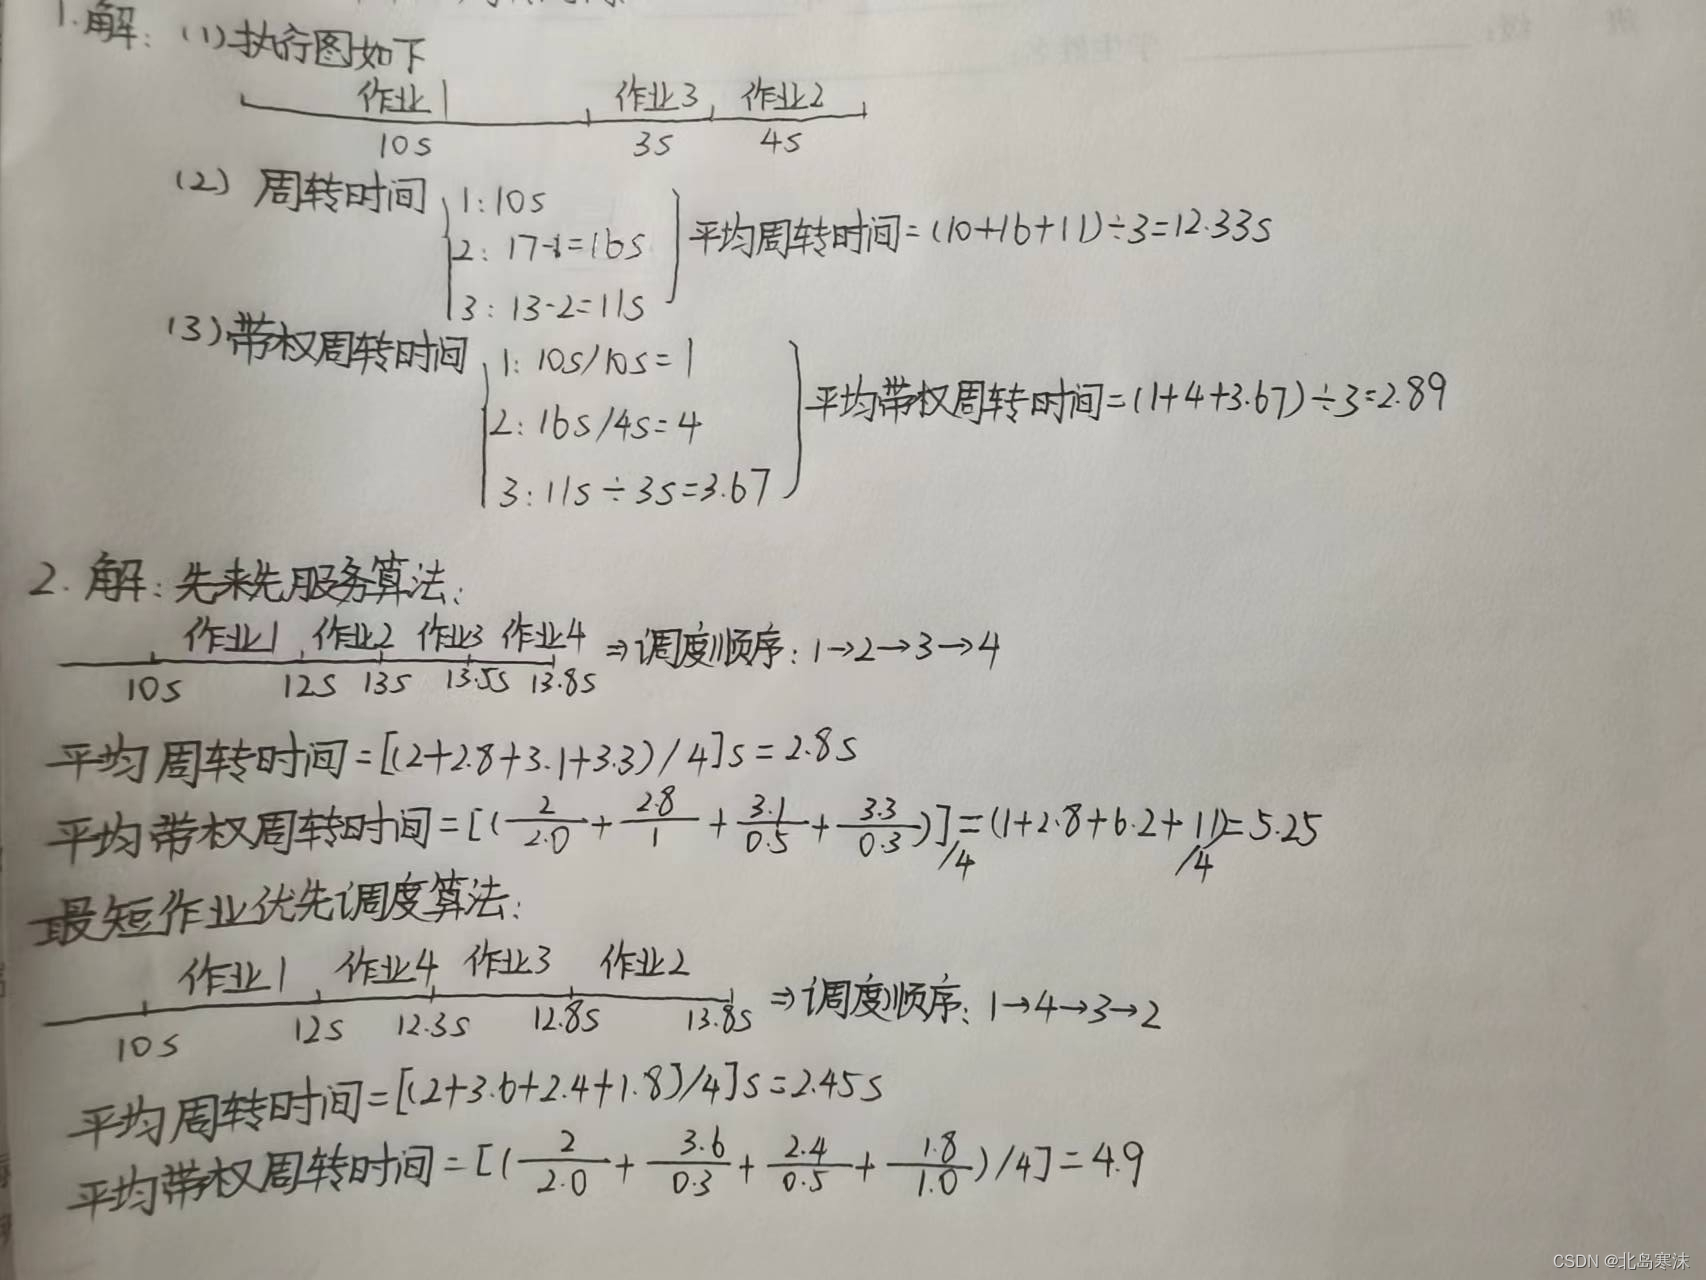 1.解：(1)执行图如下
作业1 作业3 作业2
10s 3s 4s
(2) 周转时间
1:10s
2: 17-1=16s
3: 13-2=11s
平均周转时间=(10+16+11)÷3=12.33s
(3)带权周转时间
1: 10s/10s=1
2: 16s/4s=4
3:11s÷3s=3.67
平均带权周转时间=(1+4+3.67)÷3=2.89
2. 解：先来先服务算法：
作业1 作业2 作业3 作业4 ⇒调度顺序：1→2→3→4
10s 12s 13s 13.5s 13.8s
平均周转时间=[(2+2.8+3.1+3.3)/4]s=2.8s
平均带权周转时间=[(2/2.0+2.8/1+3.1/0.5+3.3/0.3)]/4=(1+2.8+6.2+11)/4=5.25
最短作业优先调度算法：
作业1 作业4 作业3 作业2 ⇒调度顺序：1→4→3→2
10s 12s 12.3s 12.8s 13.8s
平均周转时间=[(2+3.6+2.4+1.8)/4]s=2.45s
平均带权周转时间=[(2/2.0+3.6/0.3+2.4/0.5+1.8/1.0)/4]=4.9
CSDN @北岛寒沫